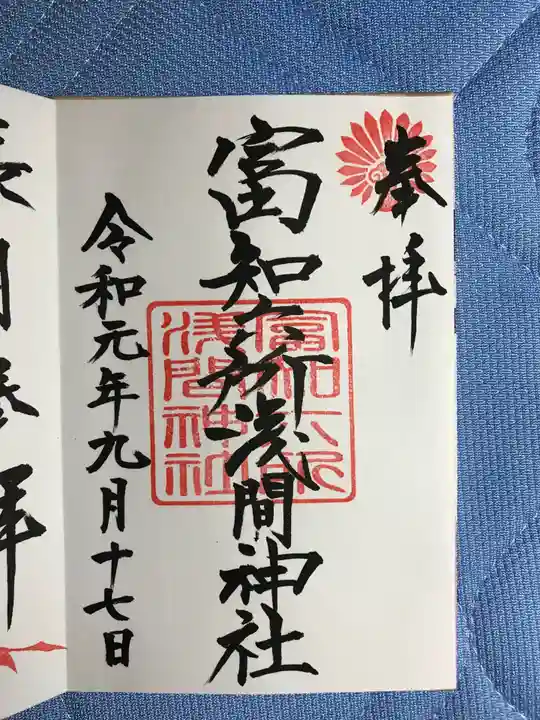 奉拝
富知六所浅間神社
富知六所
浅間神社
令和元年九月十七日
月参拝